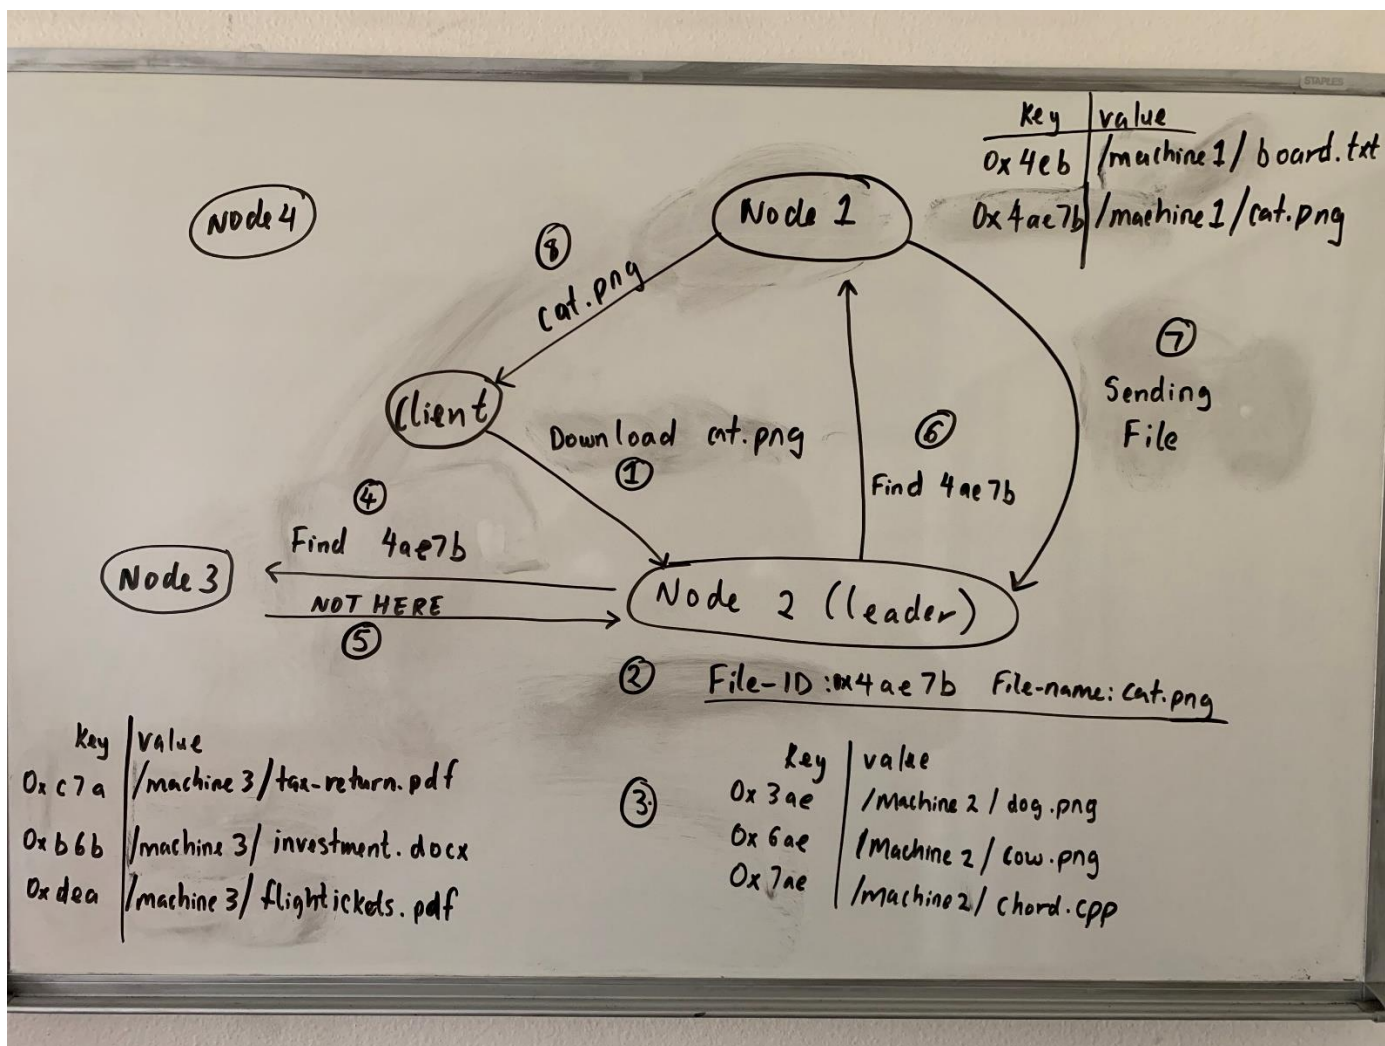 STAPLES
Key value
0x4eb /machine1/board.txt
0x4ae7b /machine1/cat.png
Node 4
Node 1
8
cat.png
7
Sending
File
Client
Download cat.png
1
6
Find 4ae7b
4
Find 4ae7b
Node 3
NOT HERE
5
Node 2 (leader)
2 File-ID:0x4ae7b File-name: cat.png
Key value
0xc7a /machine3/tax-return.pdf
0xb6b /machine3/investment.docx
0xdea /machine3/flightickets.pdf
3
Key value
0x3ae /Machine2/dog.png
0x6ae /Machine2/cow.png
0x7ae /machine2/chord.cpp